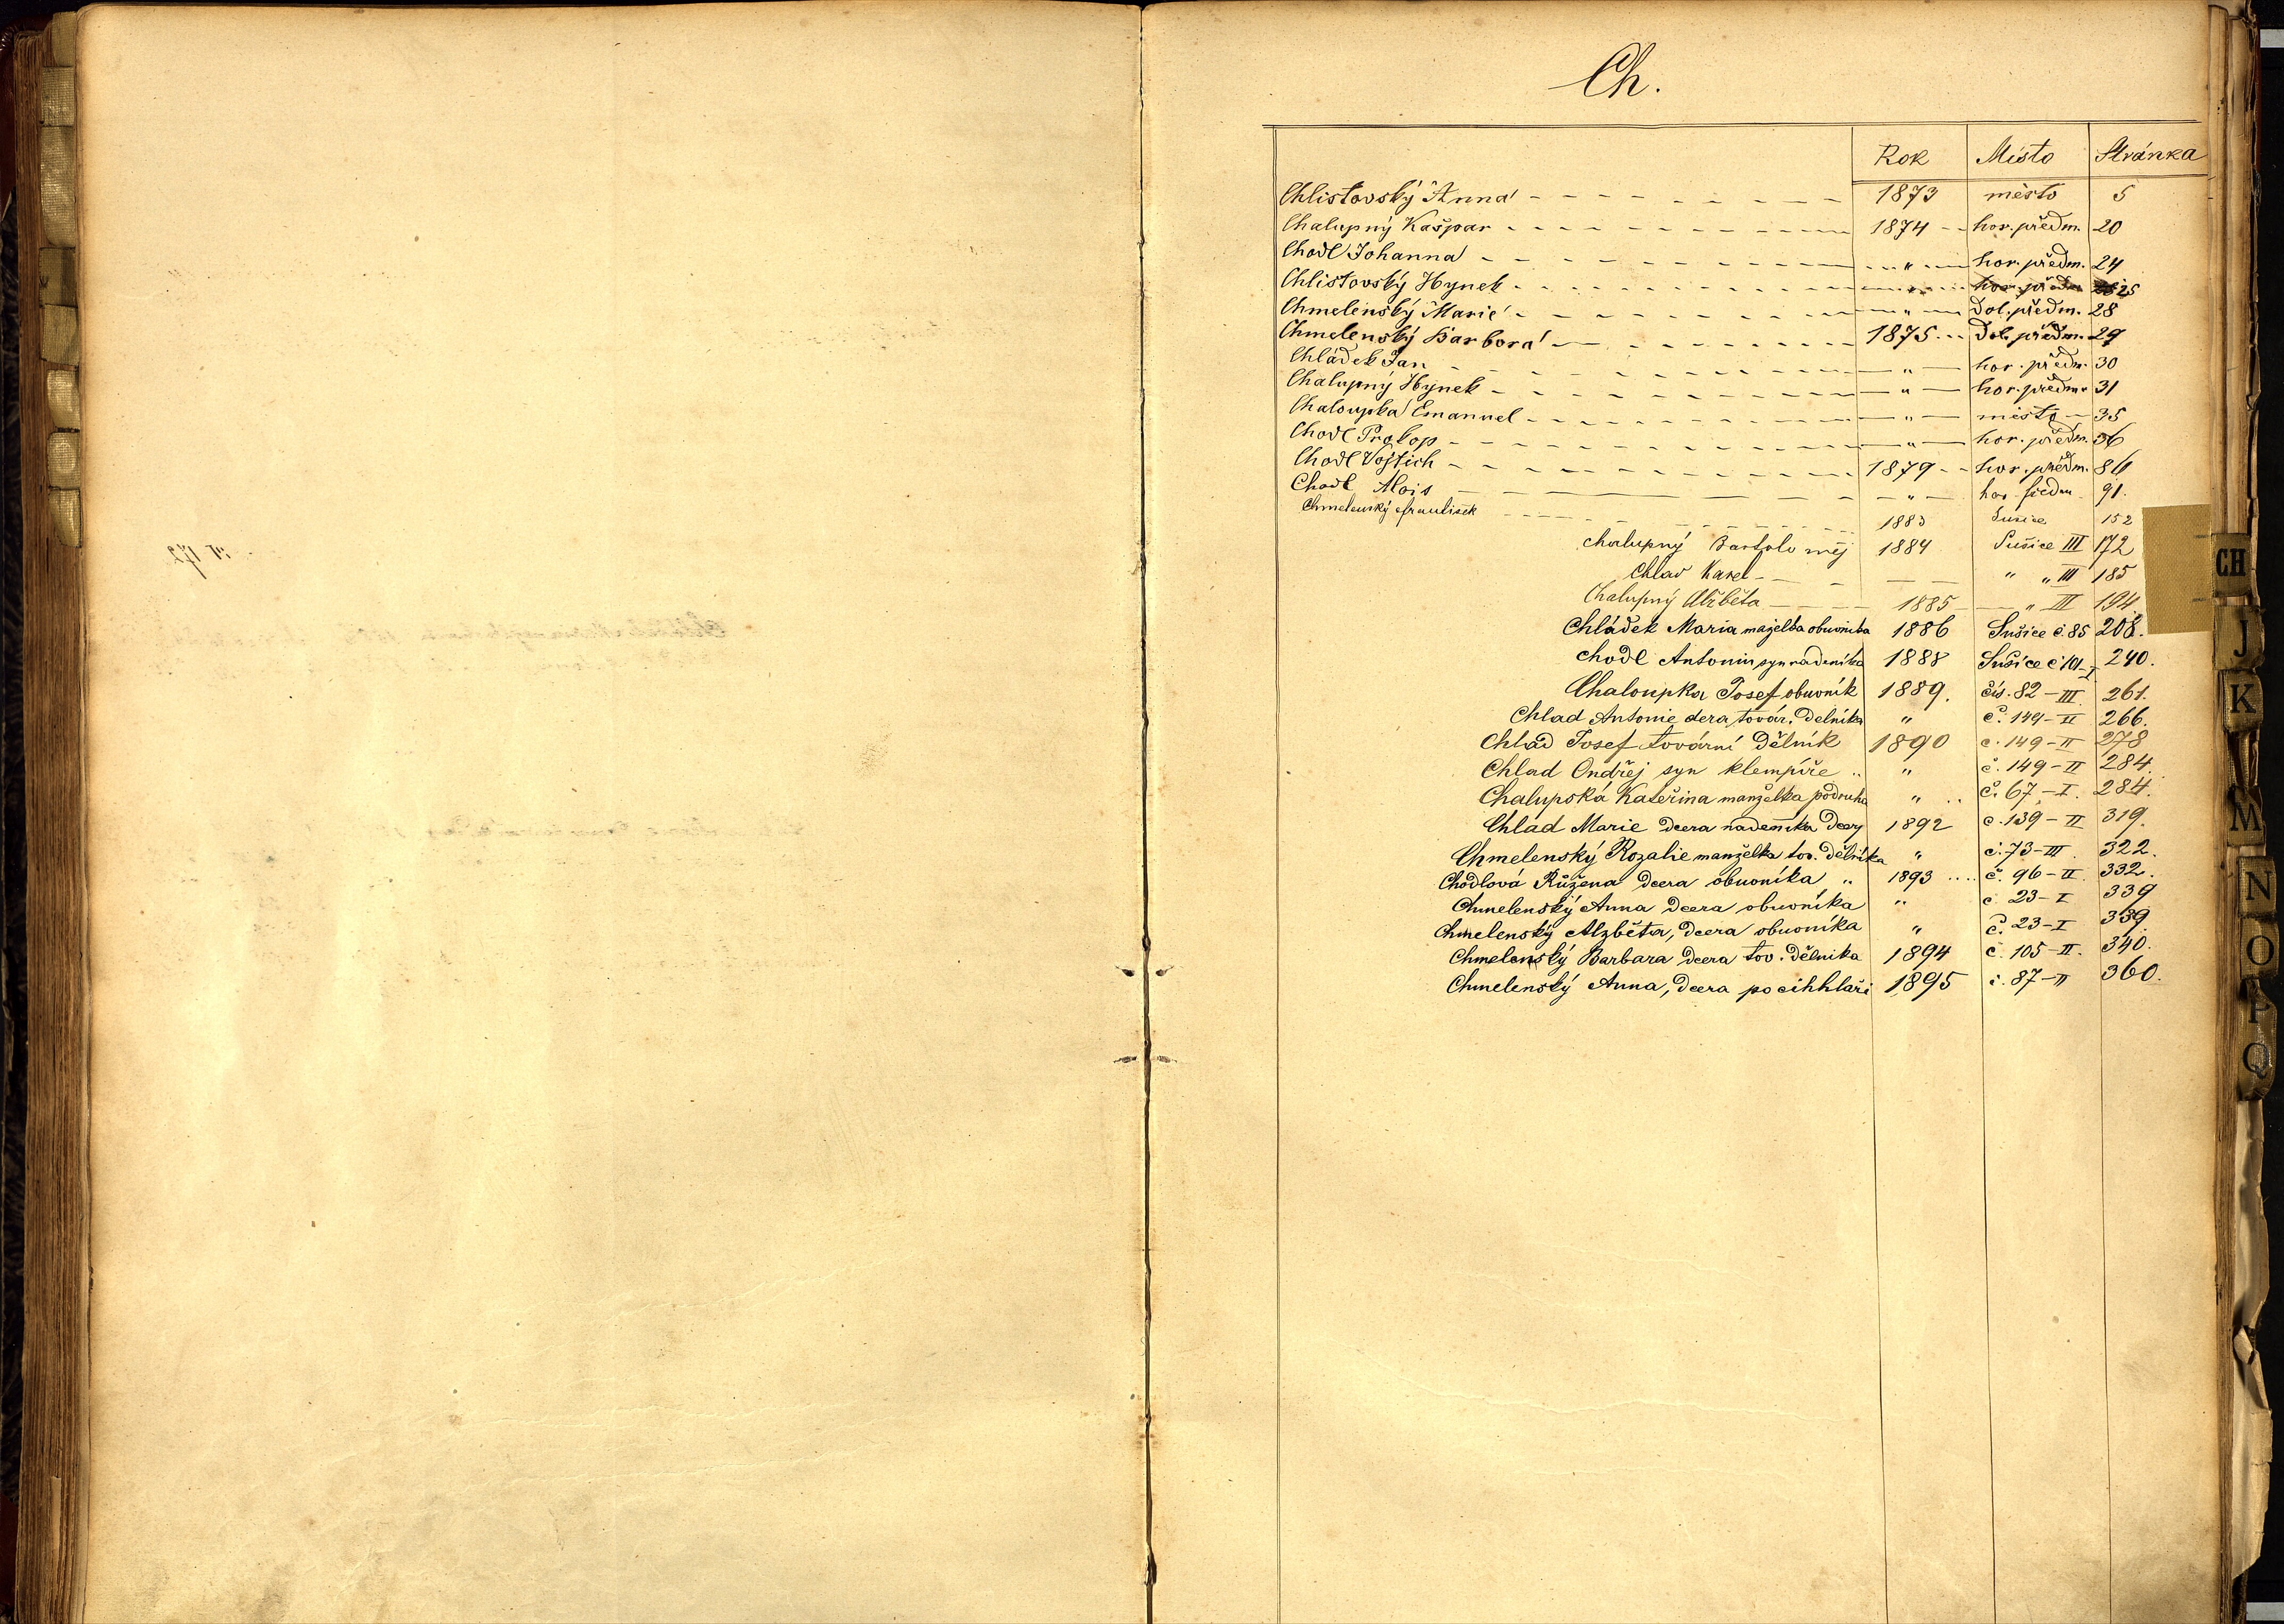 Ch.
Rok Místo Stránka
Chlistovský Anna 1873 město 5
Chalupný Kašpar 1874 hor. předm. 20
Chodl Johanna " hor. předm. 24
Chlistovský Hynek " hor. předm 25
Chmelenský Marie " Dol. předm. 28
Chmelenský Barbora 1875 Dol. předm. 29
Chládek Jan " hor. předm. 30
Chalupný Hynek " hor. předm. 31
Chaloupka Emanuel " město 35
Chodl Prokop " hor. předm. 36
Chodl Vojtěch 1879 hor. předm. 86
Chodl Alois " hor. předm 91.
Chmelenský František 1883 Sušice 152
Chalupný Bartoloměj 1884 Sušice III 172
Chlad Karel " " III 185
Chalupný Alžběta 1885 " III 194
Chládek Maria manželka obuvníka 1886 Sušice č. 85 208.
Chodl Antonin syn nadeníka 1888 Sušice č 101-I 240.
Chaloupka Josef obuvník 1889. čís. 82-III. 261.
Chlad Antonie dcera továr. Dělníka " č. 149-II 266.
Chlad Josef tovární Dělník 1890 č. 149-II 278
Chlad Ondřej syn klempíře " č. 149-II 284.
Chalupská Kateřina manželka podruha " č. 67-I. 284.
Chlad Marie Dcera nadenníka Dcery 1892 č. 139-II 319.
Chmelenský Rozalie manželka tov. Dělníka " č. 73-III. 322.
Chodlová Růžena Dcera obuvníka 1893 č. 96-II. 332.
Chmelenský Anna Dcera obuvníka " č 23-I 339
Chmelenský Alzběta, Dcera obuvníka " č. 23-I 339.
Chmelenský Barbara Dcera tov. Dělníka 1894 č. 105-II. 340.
Chmelenský Anna, Dcera po cihláři 1895 č. 87-II 360.
CH
J
K
M
N
O
P
Q